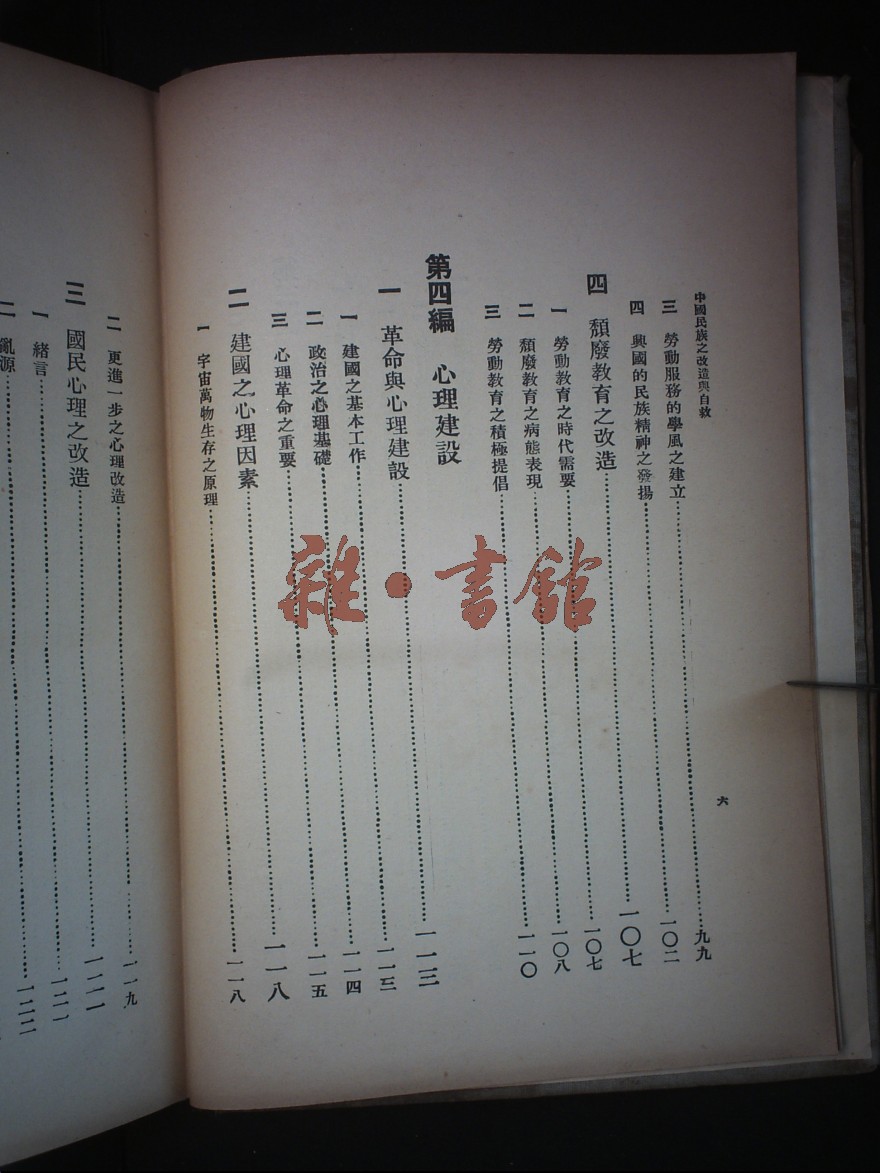 中國民族之改造與自救
六
三 勞動服務的學風之建立……九九
四 興國的民族精神之發揚……一〇二
四 頹廢教育之改造……一〇七
一 勞動教育之時代需要……一〇七
二 頹廢教育之病態表現……一〇八
三 勞動教育之積極提倡……一一〇
第四編 心理建設
一 革命與心理建設……一一三
一 建國之基本工作……一一三
二 政治之心理基礎……一一四
三 心理革命之重要……一一五
二 建國之心理因素……一一八
一 宇宙萬物生存之原理……一一八
二 更進一步之心理改造……一一九
三 國民心理之改造……一二一
一 緒言……一二一
二 亂源……一二二
雜·書館